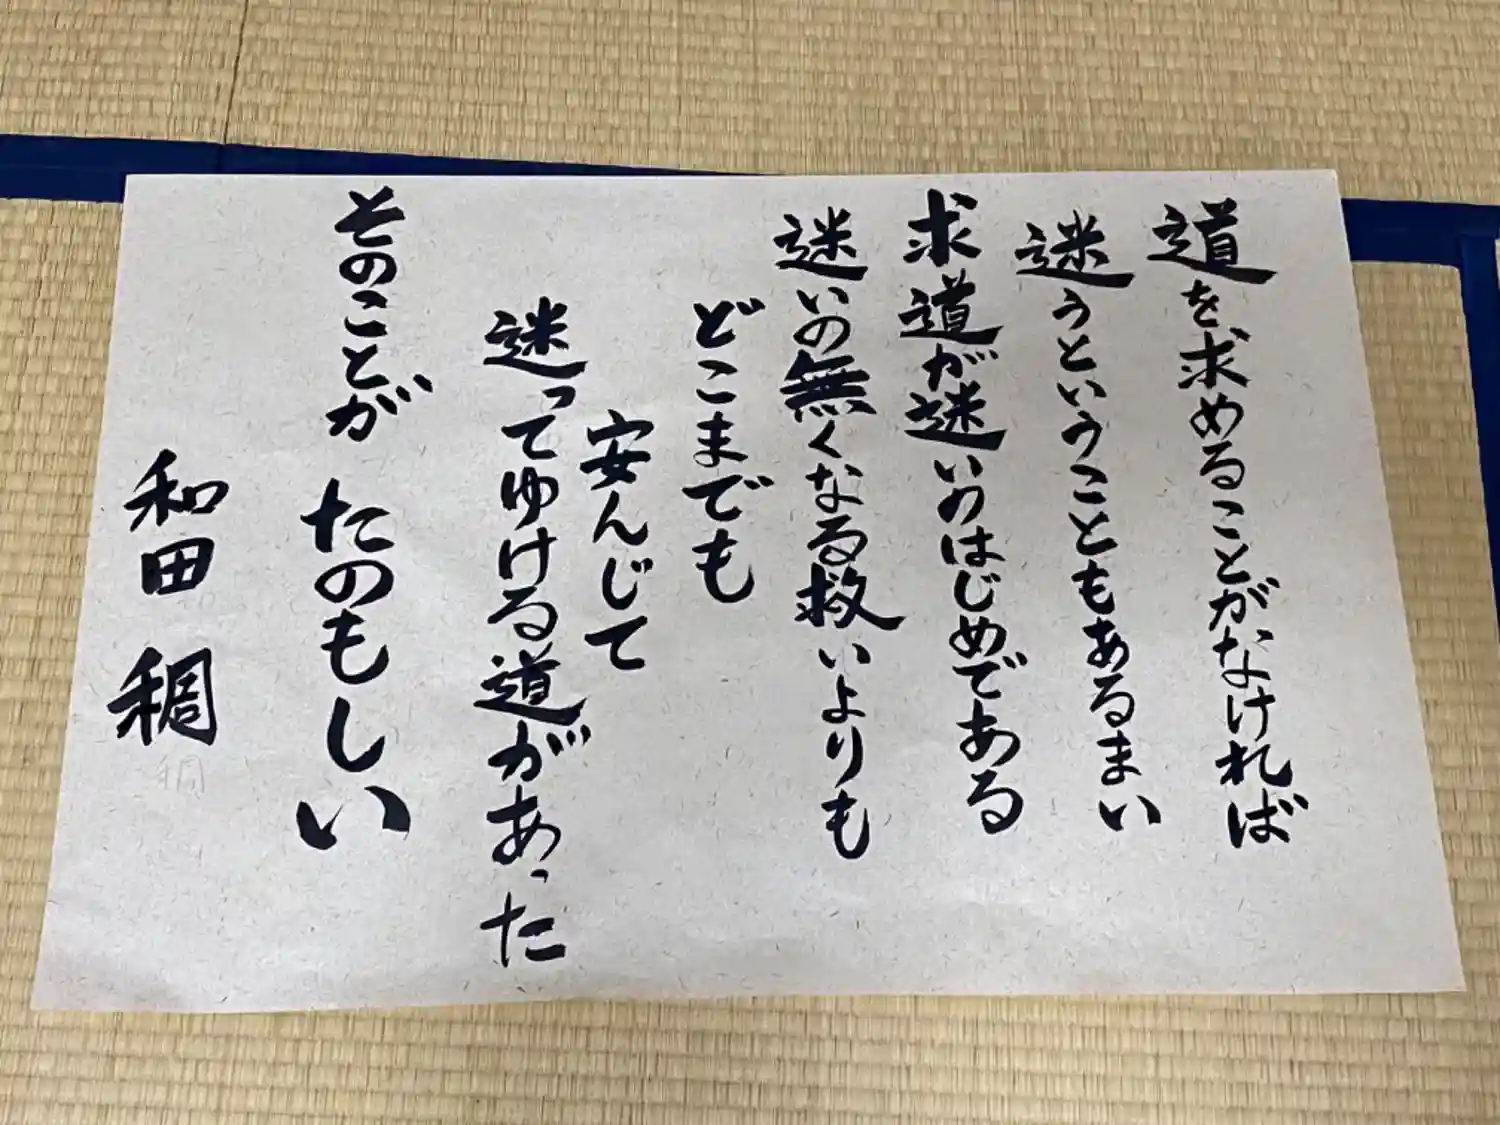 道を求めることがなければ
迷うということもあるまい
求道が迷いのはじめである
迷いの無くなる救いよりも
どこまでも
安んじて
迷ってゆける道があった
そのことが たのもしい
和田 稠
稠